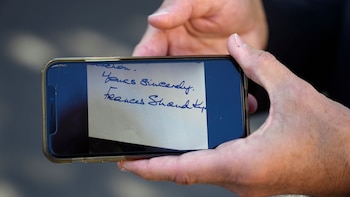 Yours sincerely,
Frances Shand Ky